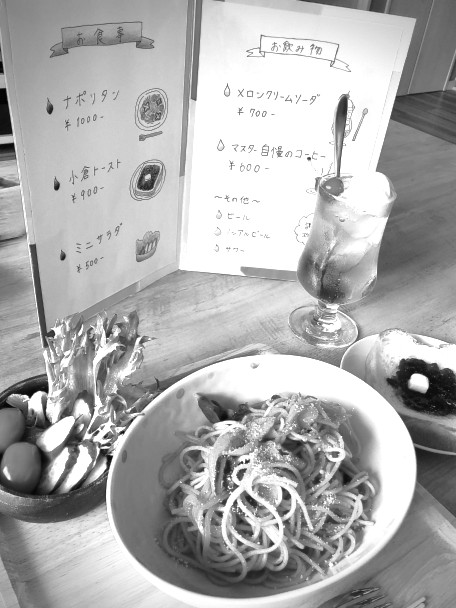 お食事
ナポリタン
¥1000-
小倉トースト
¥900-
ミニサラダ
¥500-
お飲み物
メロンクリームソーダ
¥700-
マスター自慢のコーヒー
¥600-
〜その他〜
ビール
ノンアルビール
サワー